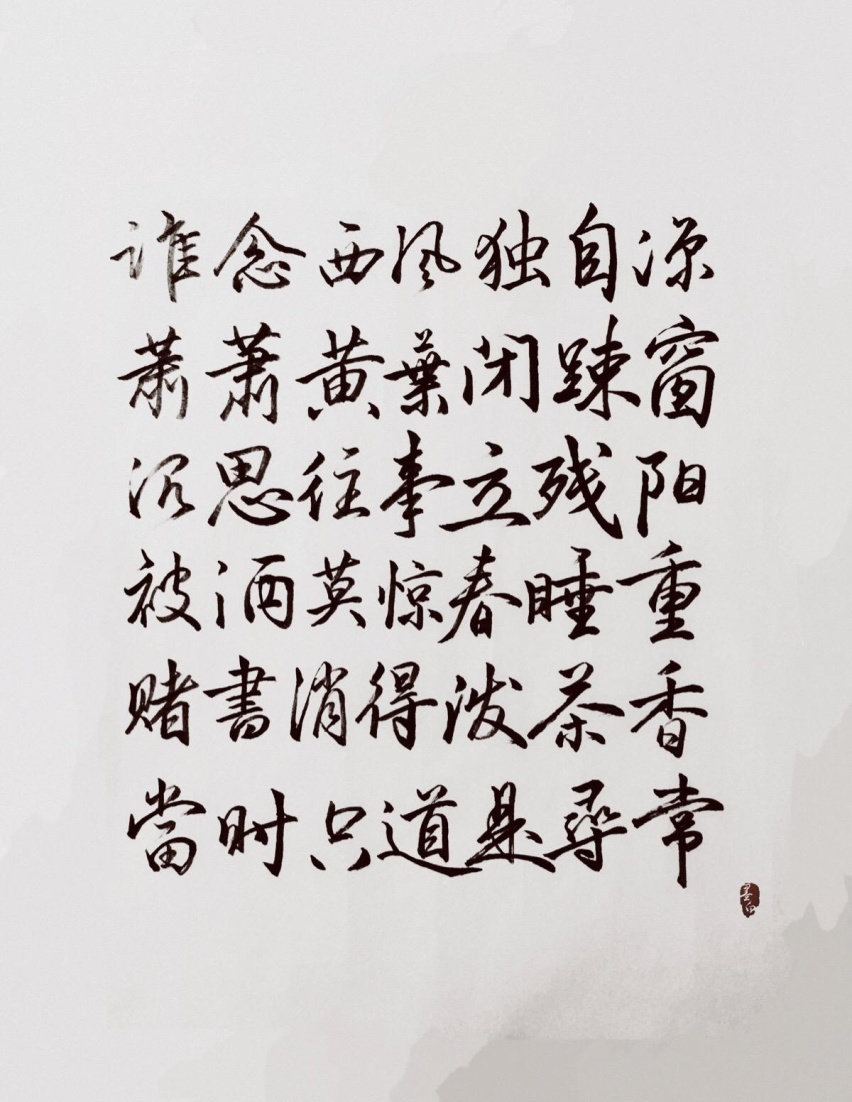 谁念西风独自凉
萧萧黄葉闭疎窗
沉思往事立残阳
被酒莫惊春睡重
赌書消得泼茶香
當时只道是尋常